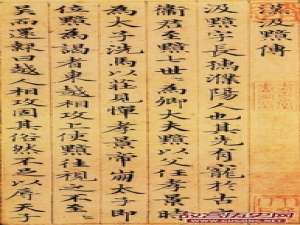 漢汲黯傳
汲黯字長孺濮陽人也其先有寵於古
衛君至黯七世為卿大夫黯以父任孝景時
為太子洗馬以莊見憚孝景帝崩太子即
位黯為謁者東越相攻上使黯往視之不至
吳而還報曰越相攻固其俗然不足以辱天子